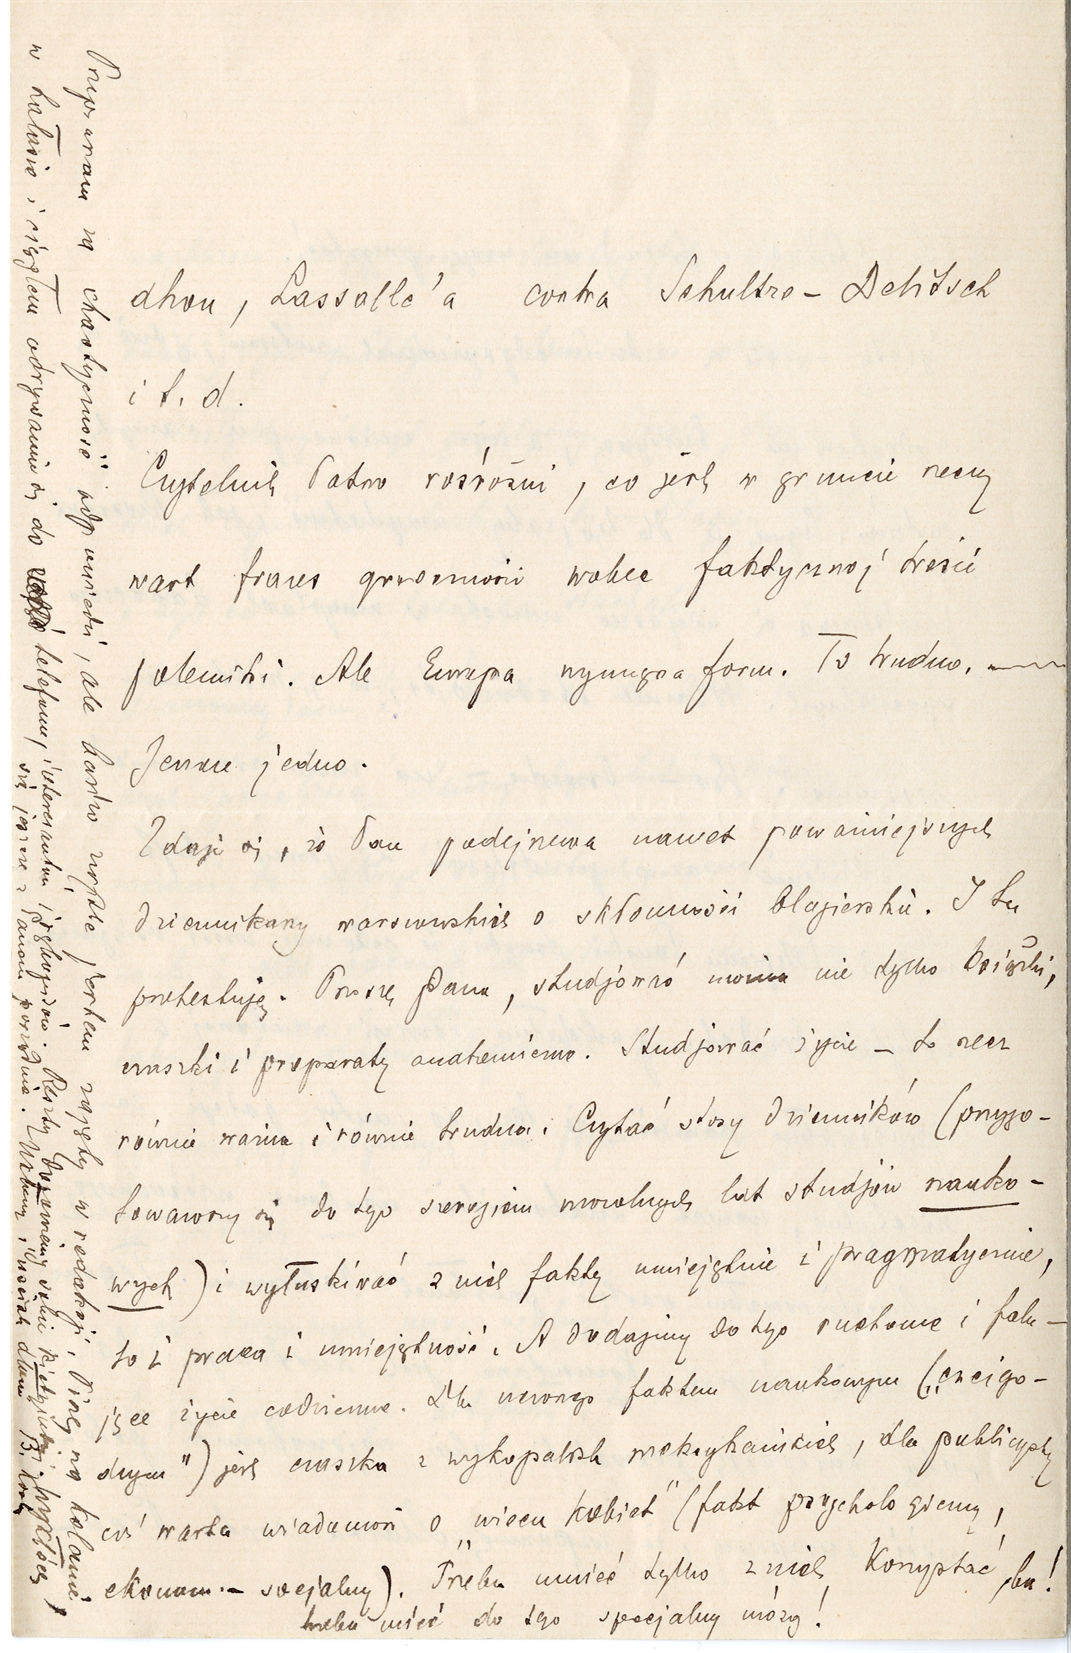 dhon, Lassalle'a contra Schultze-Delitsch
i t. d.
Czytelnik łatwo rozróżni, co jest w gruncie rzeczy
wart frazes grzeczności wobec faktycznej treści
polemiki. Ale Europa wymaga form. To trudno. —
Jeszcze jedno.
Zdaje się, że Pan podejrzewa nawet poważniejszych
dziennikarzy warszawskich o skłonności blagierskie. I tu
protestuję. Proszę Pana, studjować można nie tylko książki,
czaszki i preparaty anatomiczne. Studjować życie — to rzecz
równie ważna i równie trudna. Czytać stosy dzienników (przygo-
towawszy się do tego szeregiem mozolnych lat studjów nauko-
wych) i wyłuskiwać z nich fakty umiejętnie i pragmatycznie,
to i praca i umiejętność. A dodajmy do tego ruchome i falu-
jące życie codzienne. Dla uczonego faktem naukowym („czcigo-
dnym") jest czaszka z wykopalisk meksykańskich, dla publicysty
coś warta wiadomość o "wiecu kobiet" (fakt psychologiczny,
ekonom. - socjalny). Trzeba umieć tylko z nich korzystać, ba!
trzeba mieć do tego specjalny mózg!
Przepraszam za chaotyczność odpowiedzi, ale bardzo zwykle jestem zajęty w redakcji. Piszę na kolanie,
w hałasie i ciągłem odrywaniu się do telefonu, interesantów i Reszty
się jeszcze z Panem